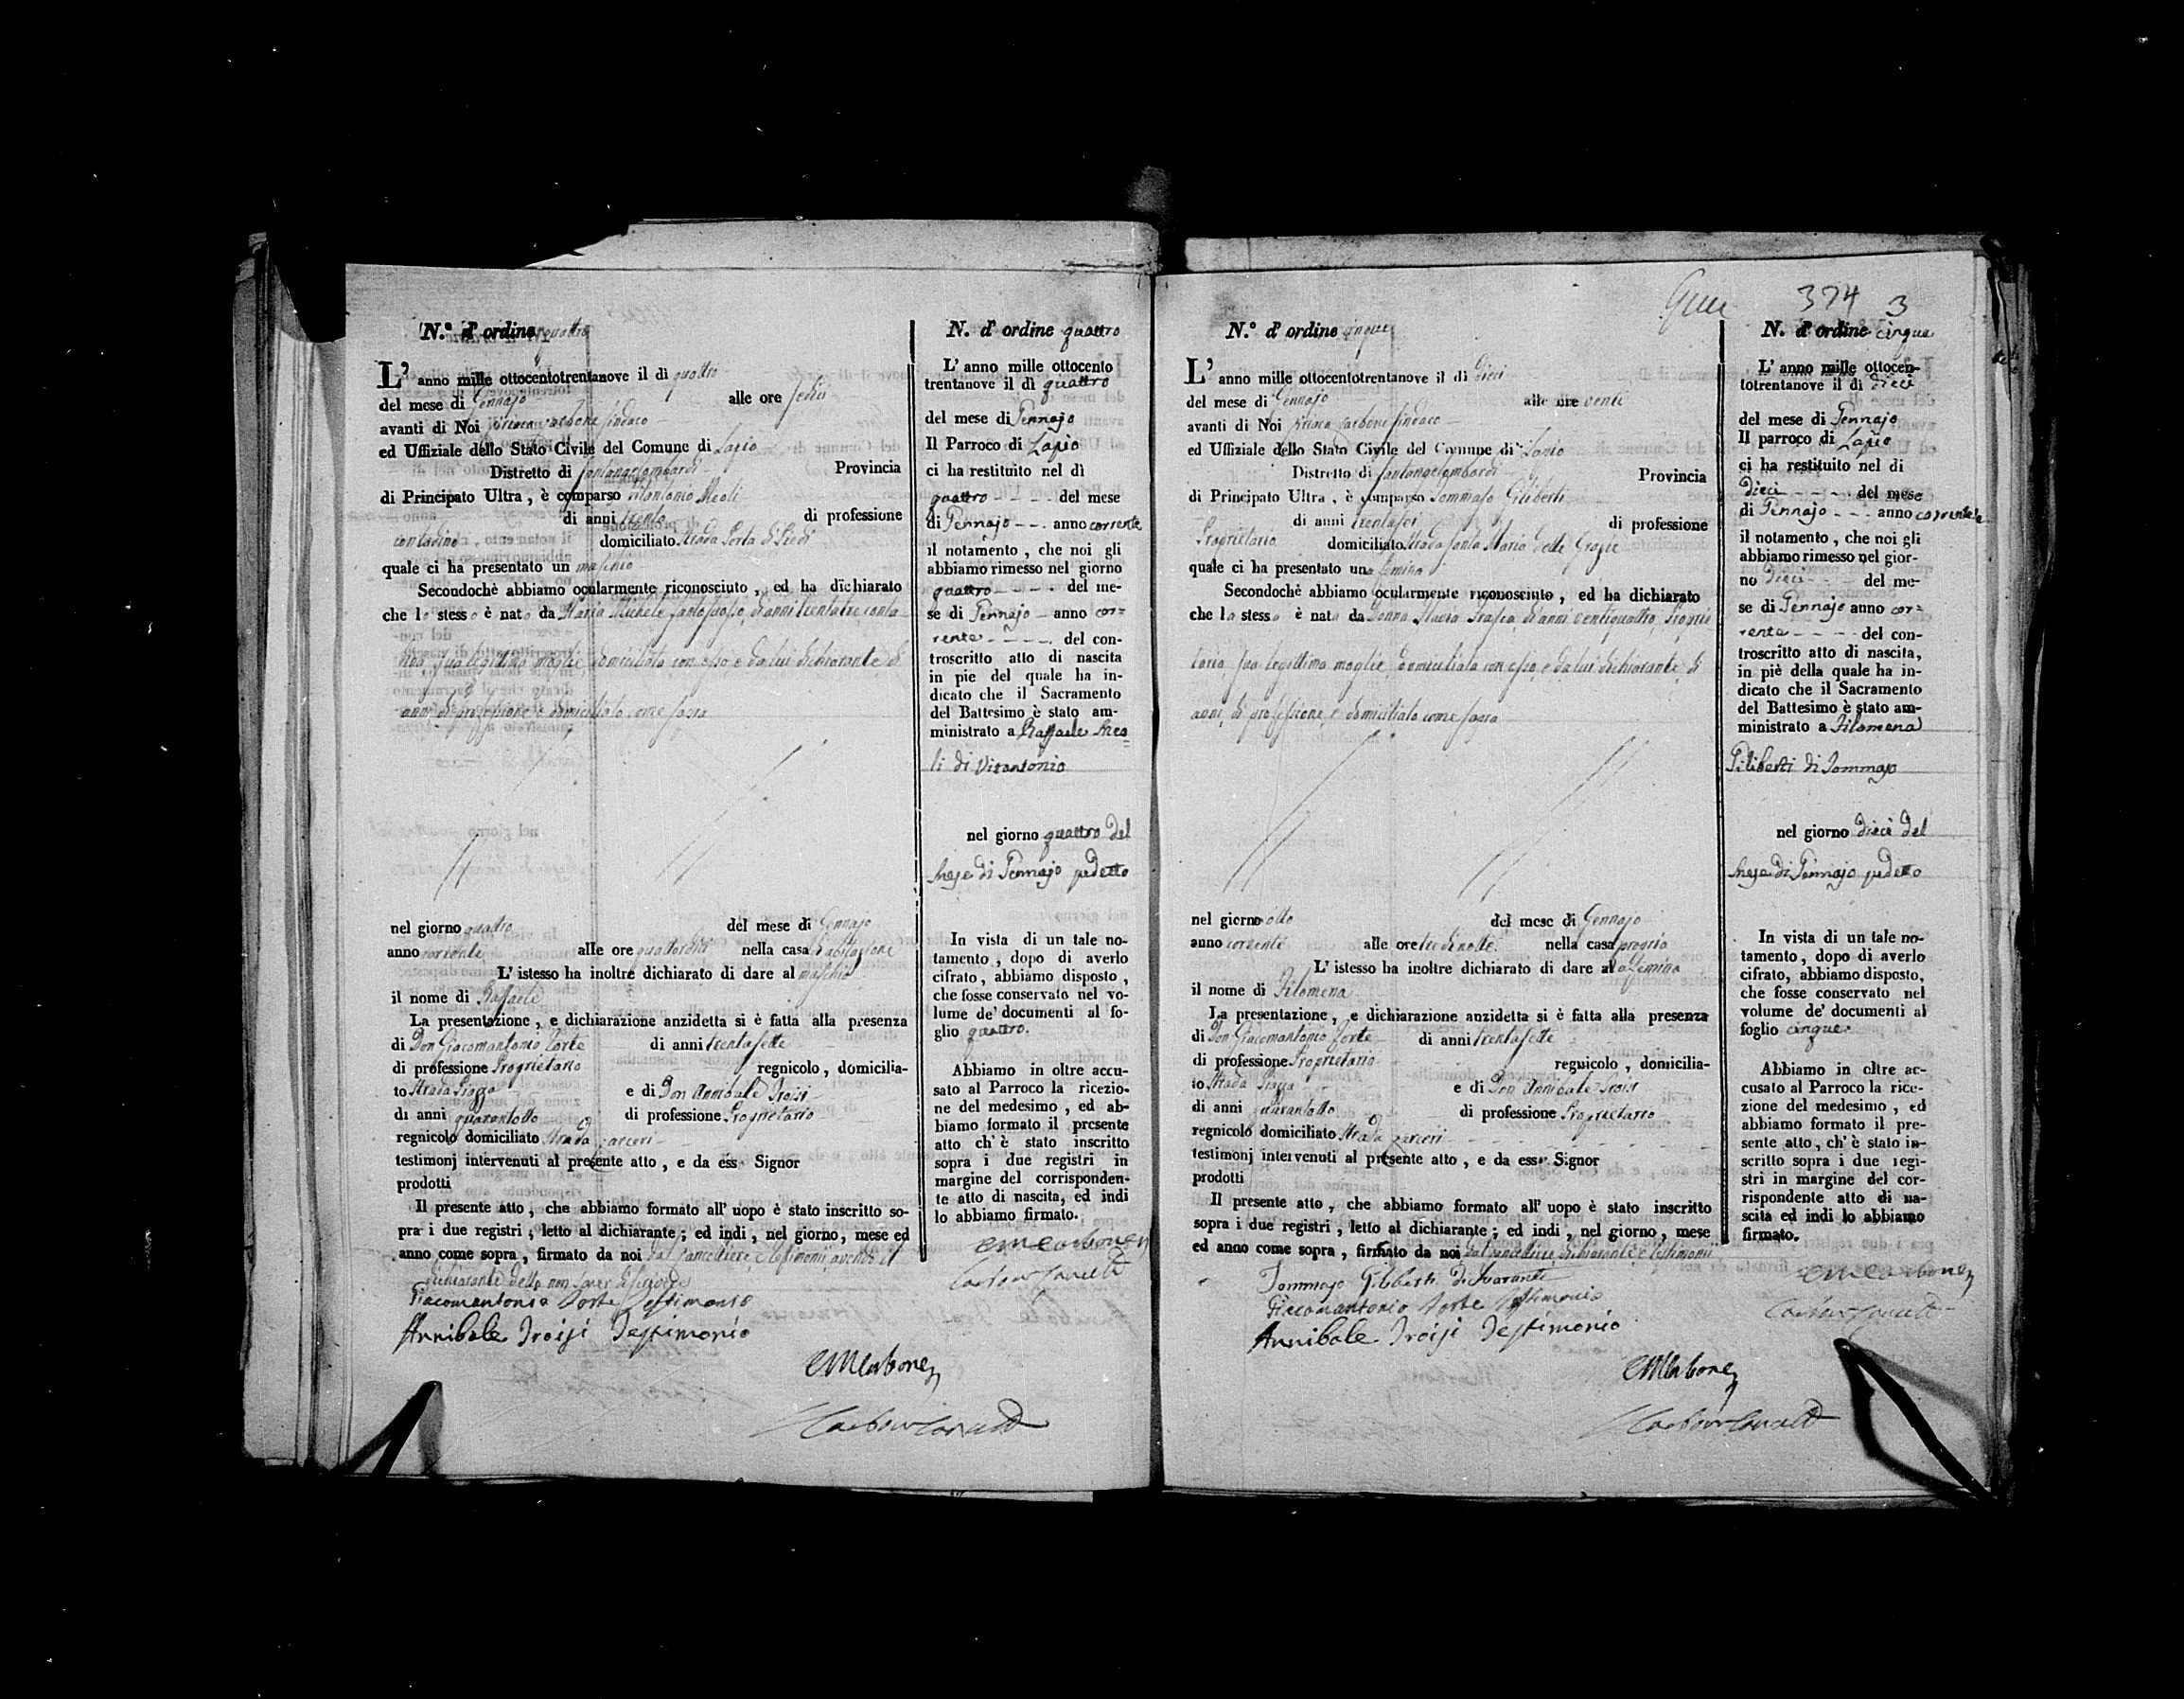 N.º d' ordine quattro
L' anno mille ottocentotrentanove il dì quattro
del mese di Gennajo alle ore sedici
avanti di Noi Carbone Sindaco
ed Uffiziale dello Stato Civile del Comune di Lapio
Distretto di Provincia
di Principato Ultra, è comparso Vitantonio Meoli
di anni trenta di professione
contadino domiciliato Strada Porta di
quale ci ha presentato un maschio
Secondochè abbiamo ocularmente riconosciuto, ed ha dichiarato
che lo stesso è nato da Maria Michele Santosuosso, di anni trentatre, conta
dina, sua legittima moglie, domiciliata con esso, e da lui dichiarante, di
anni, di professione, e domiciliato come sopra
nel giorno quattro del mese di Gennajo
anno corrente alle ore quattordici nella casa d'abitazione
L' istesso ha inoltre dichiarato di dare al maschio
il nome di Raffaele
La presentazione, e dichiarazione anzidetta si è fatta alla presenza
di Don Giacomantonio Forte di anni trentasette
di professione Proprietario regnicolo, domicilia-
to Strada Piazza e di Don Annibale Troisi
di anni quarantotto di professione Proprietario
regnicolo domiciliato Strada Carceri
testimonj intervenuti al presente atto, e da esso Signor
prodotti
Il presente atto, che abbiamo formato all' uopo è stato inscritto so-
pra i due registri, letto al dichiarante; ed indi, nel giorno, mese ed
anno come sopra, firmato da noi dal Cancelliere, e testimonii, avendo il
dichiarante detto non saper scrivere
Giacomantonio Forte Testimonio
Annibale Troisi Testimonio
N. d' ordine quattro
L' anno mille ottocento
trentanove il dì quattro
del mese di Gennajo
Il Parroco di Lapio
ci ha restituito nel dì
quattro del mese
di Gennajo anno corrente
il notamento, che noi gli
abbiamo rimesso nel giorno
quattro del me-
se di Gennajo anno cor=
rente del con-
troscritto atto di nascita
in pie del quale ha in-
dicato che il Sacramento
del Battesimo è stato am-
ministrato a Raffaele Meo
li di Vitantonio
nel giorno quattro del
Mese di Gennajo pudetto
In vista di un tale no-
tamento, dopo di averlo
cifrato, abbiamo disposto,
che fosse conservato nel vo-
lume de' documenti al fo-
glio quattro.
Abbiamo in oltre accu-
sato al Parroco la ricezio-
ne del medesimo, ed ab-
biamo formato il presente
atto ch' è stato inscritto
sopra i due registri in
margine del corrisponden-
te atto di nascita, ed indi
lo abbiamo firmato.
374 3
N.º d' ordine cinque
L' anno mille ottocentotrentanove il dì dieci
del mese di Gennajo alle ore venti
avanti di Noi Carbone Sindaco
ed Uffiziale dello Stato Civile del Comune di Lapio
Distretto di Provincia
di Principato Ultra, è comparso Tommaso Giliberti
di anni trentasei di professione
Proprietario domiciliato Strada Santa Maria delle Grazie
quale ci ha presentato una femina
Secondochè abbiamo ocularmente riconosciuto, ed ha dichiarato
che la stessa è nata da Donna Maria di anni ventiquattro, Proprie
taria, sua legittima moglie, domiciliata con esso, e da lui dichiarante, di
anni, di professione, e domiciliato come sopra
nel giorno otto del mese di Gennajo
anno corrente alle ore tre di notte nella casa propria
L' istesso ha inoltre dichiarato di dare alla femina
il nome di Filomena
La presentazione, e dichiarazione anzidetta si è fatta alla presenza
di Don Giacomantonio Forte di anni trentasette
di professione Proprietario regnicolo, domicilia-
to Strada Piazza e di Don Annibale Troisi
di anni quarantotto di professione Proprietario
regnicolo domiciliato Strada Carceri
testimonj intervenuti al presente atto, e da esso Signor
prodotti
Il presente atto, che abbiamo formato all' uopo è stato inscritto
sopra i due registri, letto al dichiarante; ed indi, nel giorno, mese
ed anno come sopra, firmato da noi dal Cancelliere, dichiarante e testimonii
Tommaso Giliberti Dichiarante
Giacomantonio Forte Testimonio
Annibale Troisi Testimonio
N. d' ordine cinque
L' anno mille ottocen-
totrentanove il dì dieci
del mese di Gennajo
Il parroco di Lapio
ci ha restituito nel dì
dieci del mese
di Gennajo anno corrente
il notamento, che noi gli
abbiamo rimesso nel gior-
no dieci del me-
se di Gennajo anno cor=
rente del con-
troscritto atto di nascita,
in piè della quale ha in-
dicato che il Sacramento
del Battesimo è stato am-
ministrato a Filomena
Giliberti di Tommaso
nel giorno dieci del
Mese di Gennajo pudetto
In vista di un tale no-
tamento, dopo di averlo
cifrato, abbiamo disposto,
che fosse conservato nel
volume de' documenti al
foglio cinque.
Abbiamo in oltre ac-
cusato al Parroco la rice-
zione del medesimo, ed
abbiamo formato il pre-
sente atto, ch' è stato in-
scritto sopra i due regi-
stri in margine del cor-
rispondente atto di na-
scita ed indi lo abbiamo
firmato.